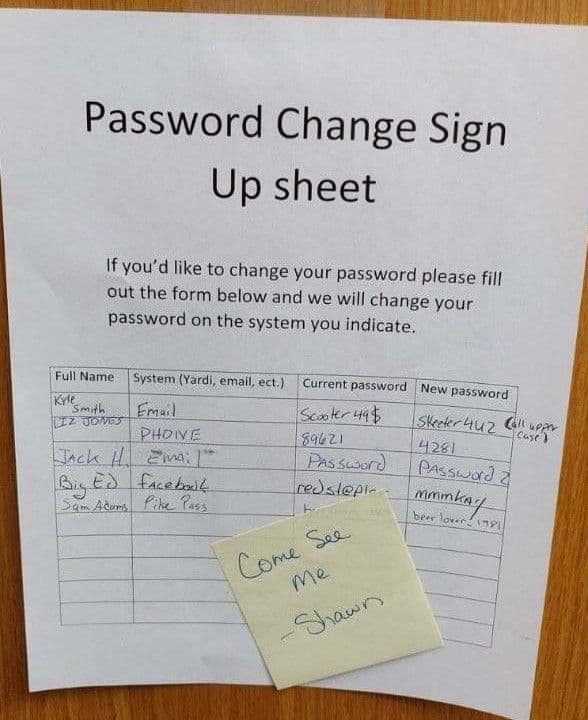 Password Change Sign
Up sheet
If you'd like to change your password please fill
out the form below and we will change your
password on the system you indicate.
Full Name System (Yardi, email, ect.) Current password New password
Kyle
Smith Email Scooter 49$ Skeeter 442 (all upper
case)
LIZ JONES PHONE 89621 4281
Jack H. Email Password Password 2
Big Ed facebook mmmkay
Sam Adams Pike Pass beer lover 1981
Come See
Me
-Shawn